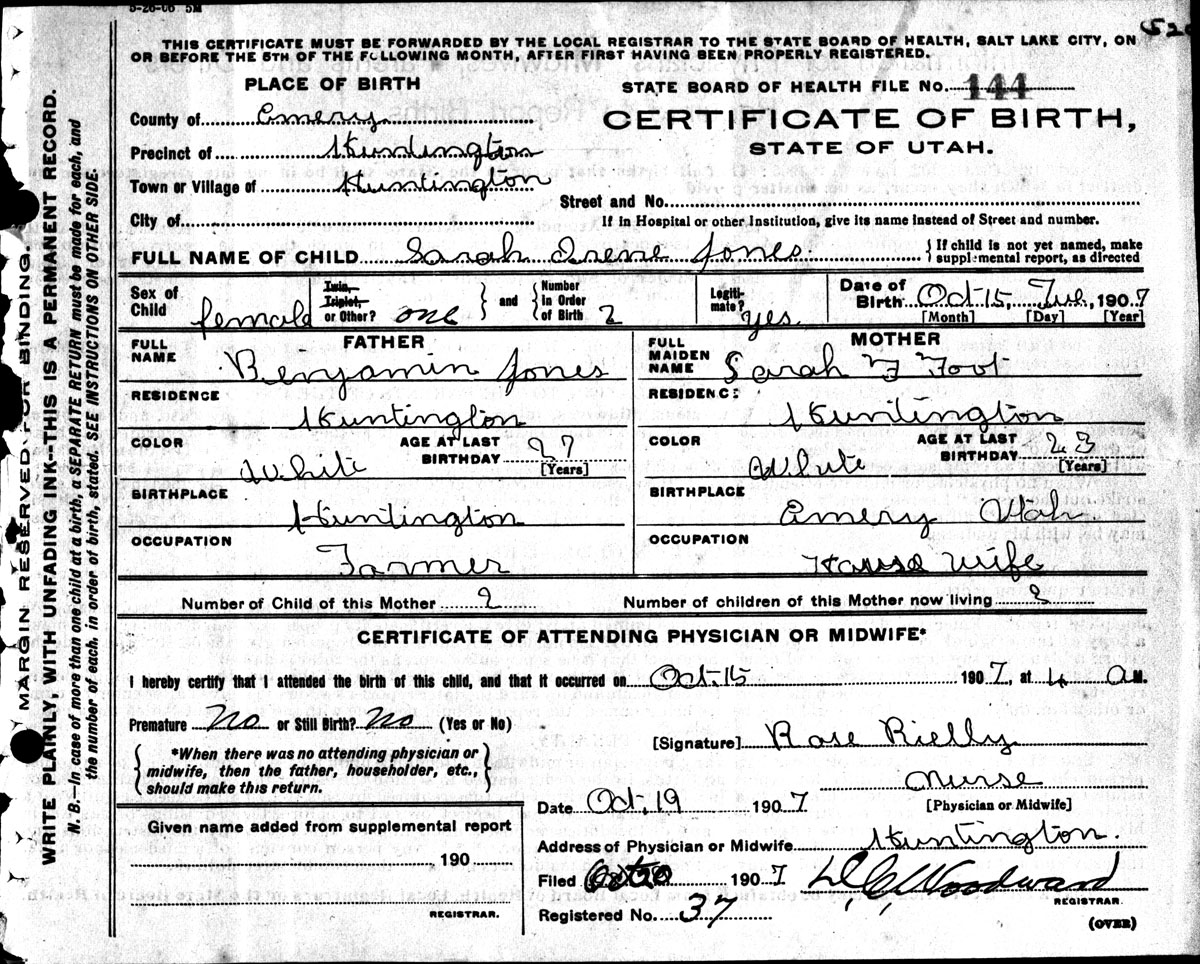 5-26-06 5M
520
THIS CERTIFICATE MUST BE FORWARDED BY THE LOCAL REGISTRAR TO THE STATE BOARD OF HEALTH, SALT LAKE CITY, ON
OR BEFORE THE 5TH OF THE FOLLOWING MONTH, AFTER FIRST HAVING BEEN PROPERLY REGISTERED.
PLACE OF BIRTH
STATE BOARD OF HEALTH FILE No. 144
County of Emery
CERTIFICATE OF BIRTH,
Precinct of Huntington
STATE OF UTAH.
Town or Village of Huntington
Street and No.
City of
If in Hospital or other Institution, give its name instead of Street and number.
FULL NAME OF CHILD Sarah Irene Jones
{ If child is not yet named, make
supplemental report, as directed
Sex of Child female
Twin, Triplet, or Other? one } and { Number in Order of Birth 2
Legiti-mate? yes.
Date of Birth Oct 15, Tue, 1907
[Month] [Day] [Year]
FATHER
FULL NAME Benjamin Jones
RESIDENCE
Huntington
COLOR White
AGE AT LAST BIRTHDAY 27
[Years]
BIRTHPLACE
Huntington
OCCUPATION
Farmer
MOTHER
FULL MAIDEN NAME Sarah F Foot
RESIDENCE:
Huntington
COLOR White
AGE AT LAST BIRTHDAY 23
[Years]
BIRTHPLACE
Emery Utah.
OCCUPATION
House Wife
Number of Child of this Mother 2
Number of children of this Mother now living 2
CERTIFICATE OF ATTENDING PHYSICIAN OR MIDWIFE*
I hereby certify that I attended the birth of this child, and that it occurred on Oct. 15 1907, at 4 A M.
Premature No or Still Birth? No (Yes or No)
{ *When there was no attending physician or
midwife, then the father, householder, etc.,
should make this return. }
[Signature] Rose Rielly
nurse
[Physician or Midwife]
Date Oct. 19 1907
Address of Physician or Midwife Huntington.
Given name added from supplemental report
, 190
REGISTRAR.
Filed Oct 20 1907 Woodward
REGISTRAR.
Registered No. 37
(OVER)
MARGIN RESERVED FOR BINDING.
WRITE PLAINLY, WITH UNFADING INK--THIS IS A PERMANENT RECORD.
N. B.—In case of more than one child at a birth, a SEPARATE RETURN must be made for each, and
the number of each, in order of birth, stated. SEE INSTRUCTIONS ON OTHER SIDE.